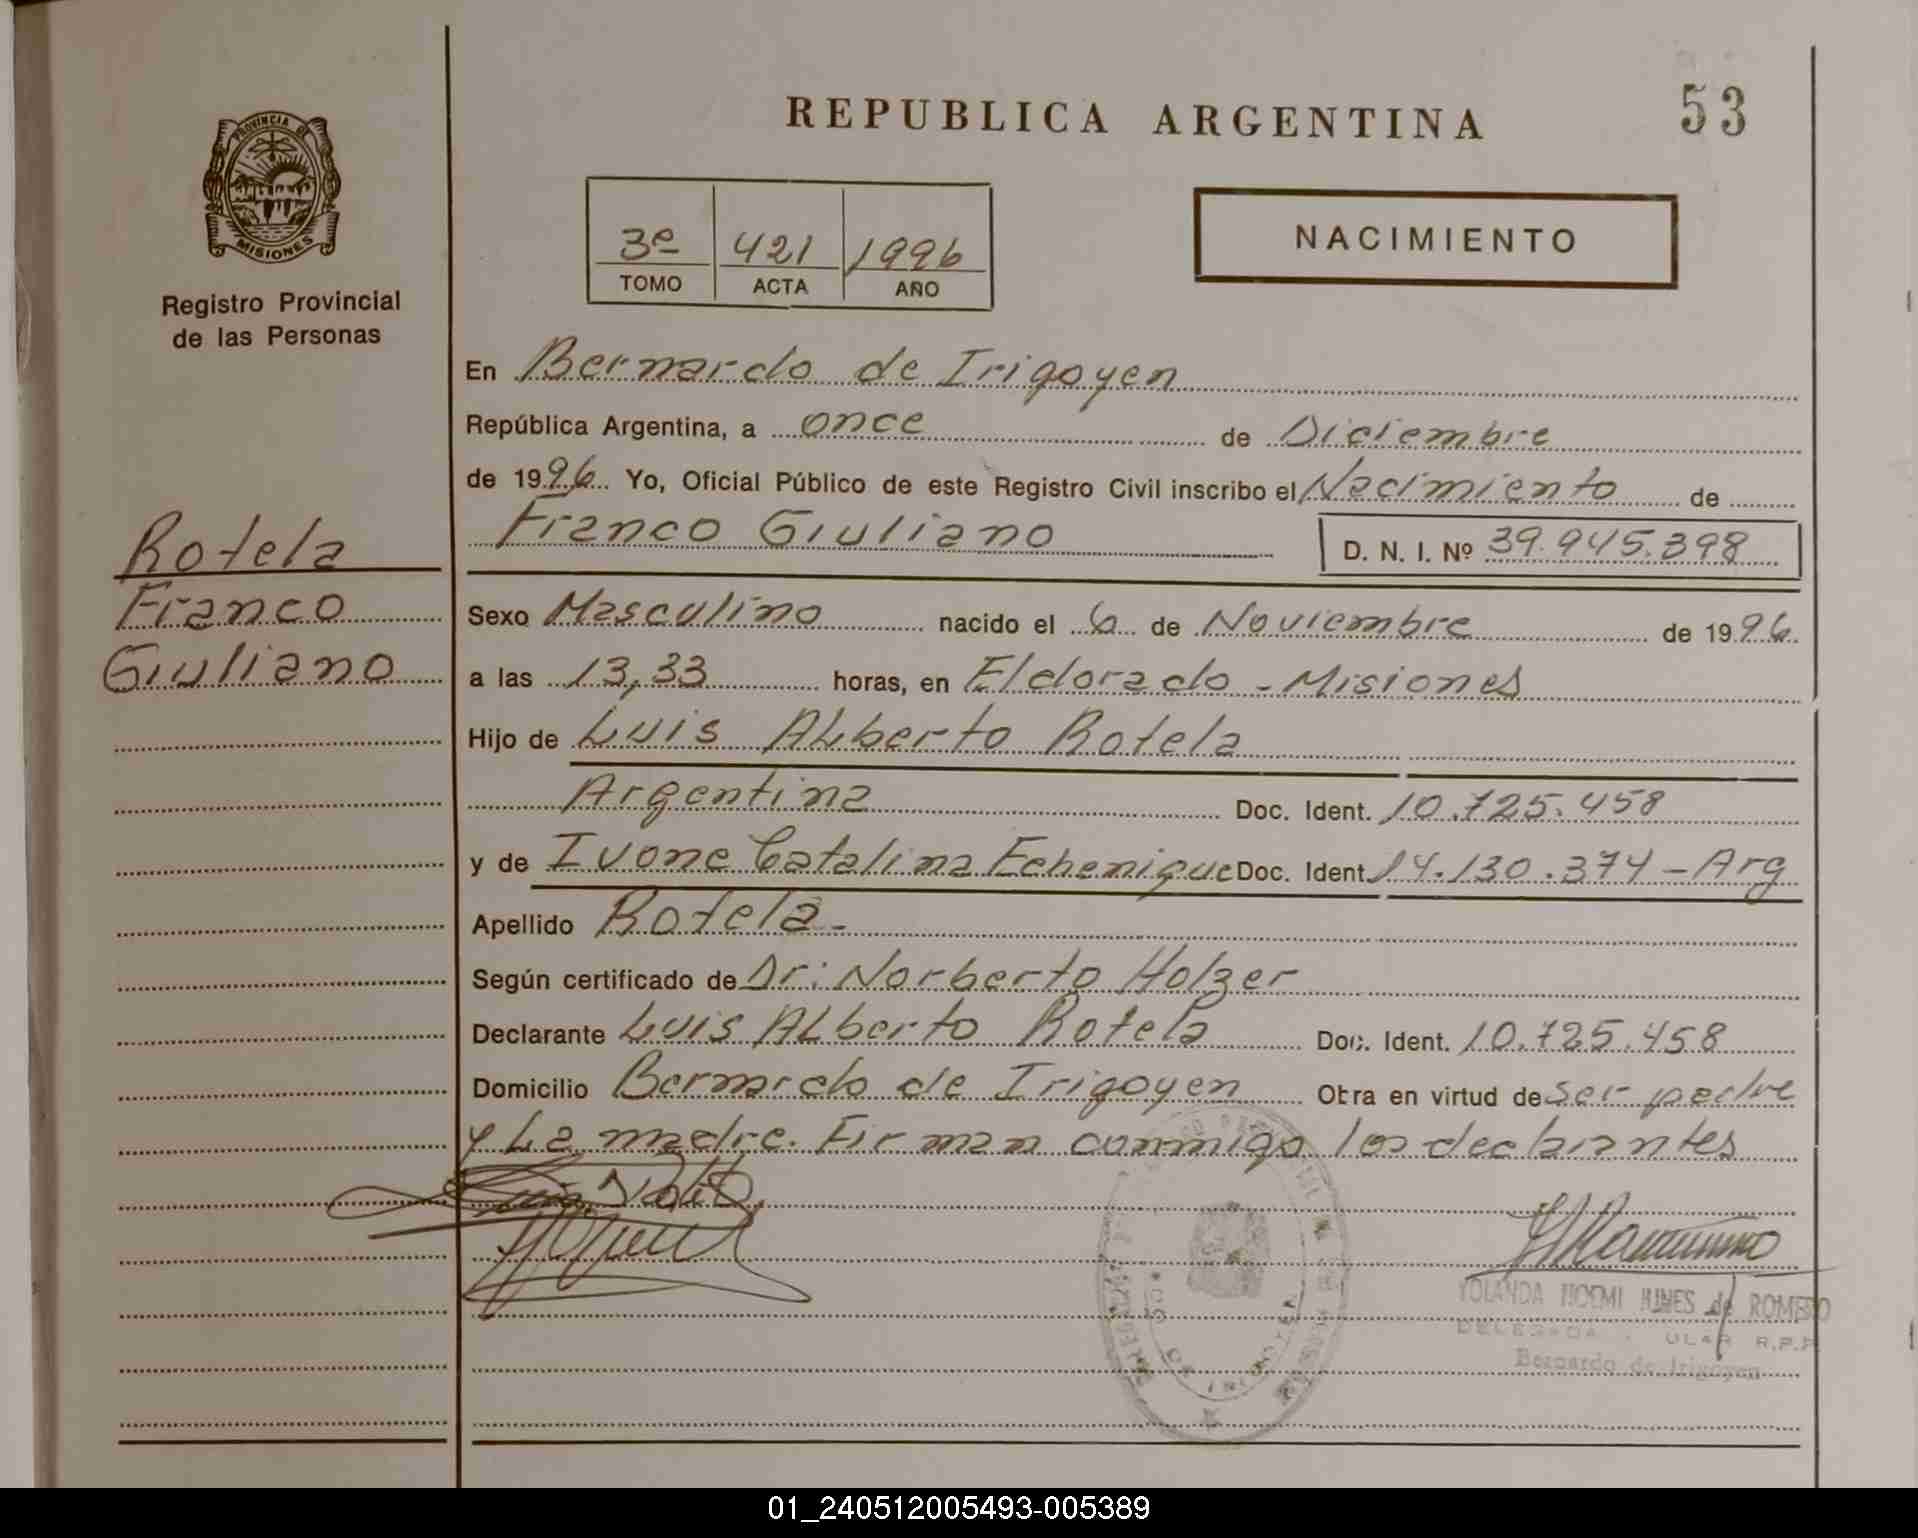 REPUBLICA ARGENTINA
53
PROVINCIA DE
MISIONES
Registro Provincial
de las Personas
3º 421 1996
TOMO ACTA AÑO
NACIMIENTO
En Bernardo de Irigoyen
República Argentina, a once de Diciembre
de 1996 Yo, Oficial Público de este Registro Civil inscribo el Nacimiento de
Franco Giuliano D. N. I. Nº 39.945.398
Rotela
Franco
Giuliano
Sexo Masculino nacido el 6 de Noviembre de 1996
a las 13,33 horas, en Eldorado - Misiones
Hijo de Luis ALberto Rotela
Argentina Doc. Ident. 10.725.458
y de Ivone Catalina Echenique Doc. Ident. 14.130.374 - Arg
Apellido Rotela -
Según certificado de Dr: Norberto Holzer
Declarante Luis ALberto Rotela Doc. Ident. 10.725.458
Domicilio Bernardo de Irigoyen Obra en virtud de ser padre
y La madre. Firman conmigo los declarantes
YOLANDA NOEMI NUNES de ROMERO
DELEGADA R.P.P.
Bernardo de Irigoyen
01_240512005493-005389